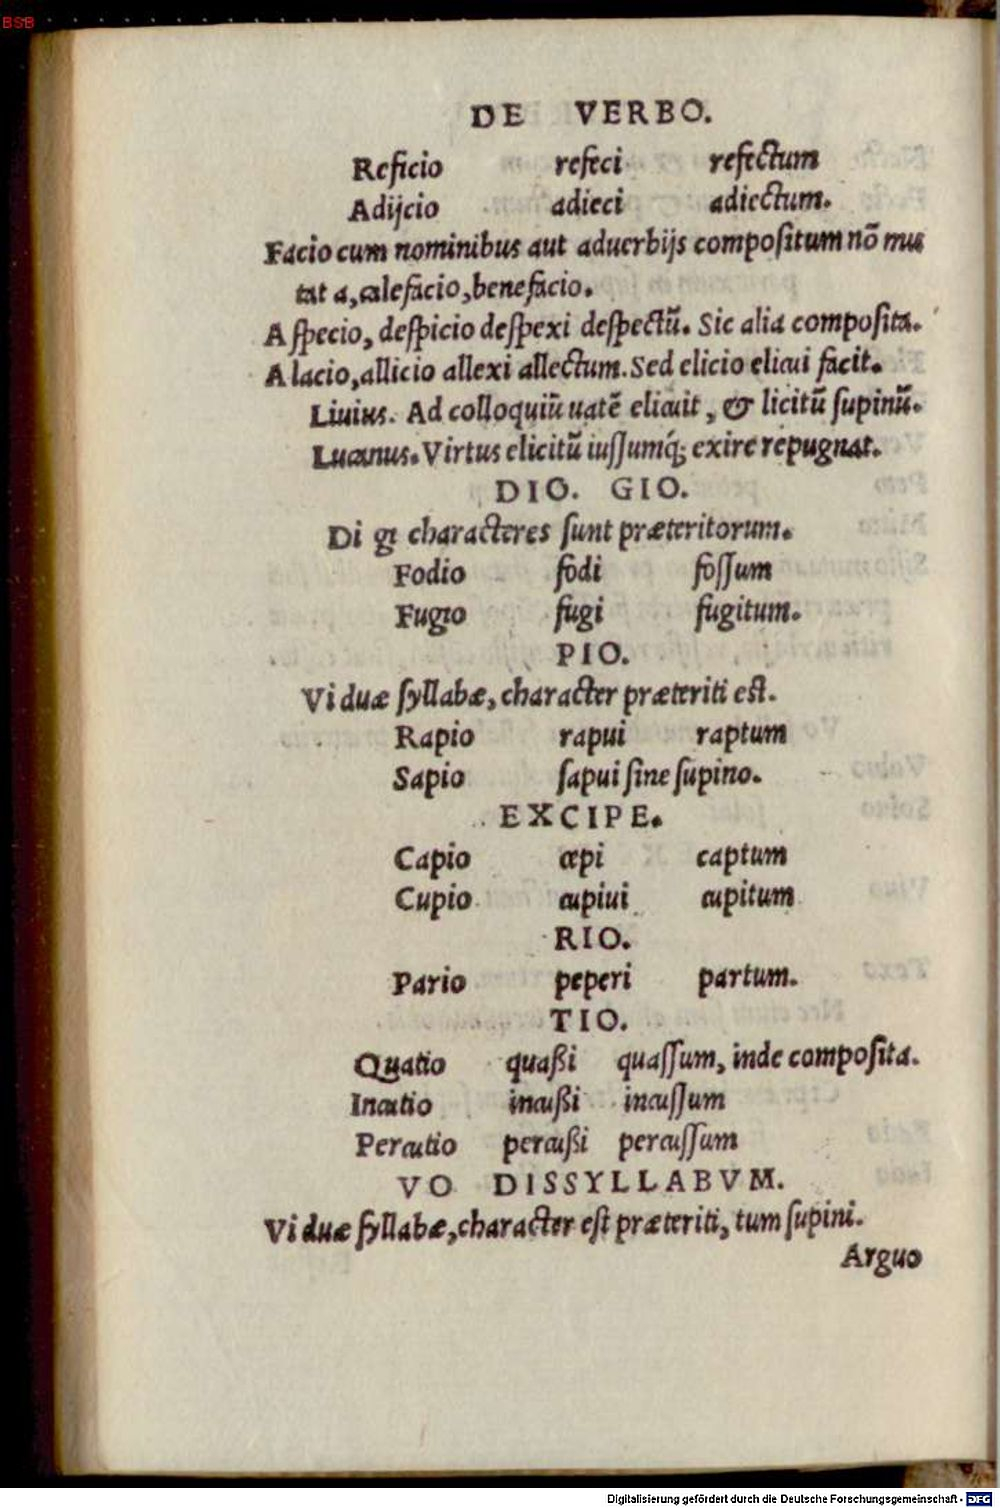 BSB
DE VERBO.
Reficio refeci refectum
Adijcio adieci adiectum.
Facio cum nominibus aut aduerbijs compositum nō mu
tat a, calefacio, benefacio.
A specio, despicio despexi despectū. Sic alia composita.
A lacio, allicio allexi allectum. Sed elicio elicui facit.
Liuius. Ad colloquiū uatē elicuit, & licitū supinū.
Lucanus. Virtus elicitū iussumq́; exire repugnat.
DIO. GIO.
Di gi characteres sunt præteritorum.
Fodio fodi fossum
Fugio fugi fugitum.
PIO.
Vi duæ syllabæ, character præteriti est.
Rapio rapui raptum
Sapio sapui sine supino.
EXCIPE.
Capio cepi captum
Cupio cupiui cupitum
RIO.
Pario peperi partum.
TIO.
Quatio quaßi quassum, inde composita.
Incutio incußi incussum
Percutio percußi percussum
VO DISSYLLABVM.
Vi duæ syllabæ, character est præteriti, tum supini.
Arguo
Digitalisierung gefördert durch die Deutsche Forschungsgemeinschaft - DFG